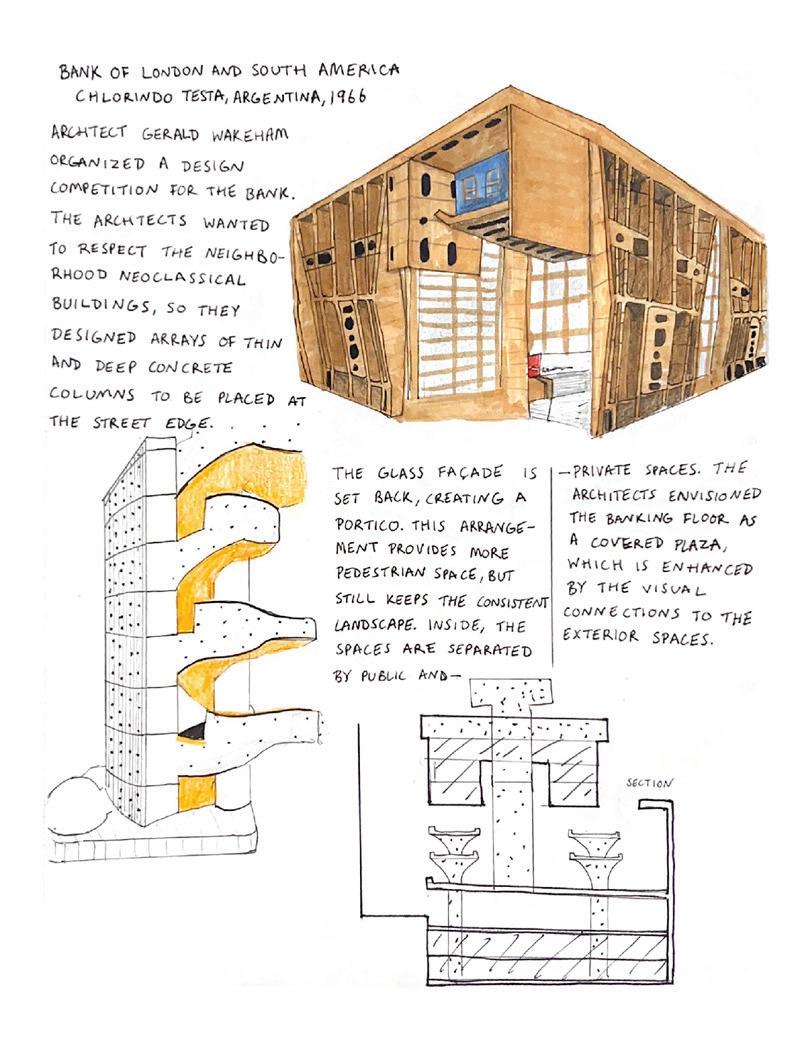 BANK OF LONDON AND SOUTH AMERICA
CHLORINDO TESTA, ARGENTINA, 1966
ARCHITECT GERALD WAKEHAM
ORGANIZED A DESIGN
COMPETITION FOR THE BANK.
THE ARCHITECTS WANTED
TO RESPECT THE NEIGHBO-
RHOOD NEOCLASSICAL
BUILDINGS, SO THEY
DESIGNED ARRAYS OF THIN
AND DEEP CONCRETE
COLUMNS TO BE PLACED AT
THE STREET EDGE.
THE GLASS FAÇADE IS
SET BACK, CREATING A
PORTICO. THIS ARRANGE-
MENT PROVIDES MORE
PEDESTRIAN SPACE, BUT
STILL KEEPS THE CONSISTENT
LANDSCAPE. INSIDE, THE
SPACES ARE SEPARATED
BY PUBLIC AND—
—PRIVATE SPACES. THE
ARCHITECTS ENVISIONED
THE BANKING FLOOR AS
A COVERED PLAZA,
WHICH IS ENHANCED
BY THE VISUAL
CONNECTIONS TO THE
EXTERIOR SPACES.
SECTION